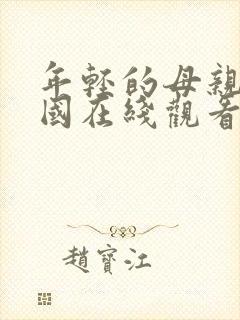 年輕的母親
國在綫觀看
趙寶江